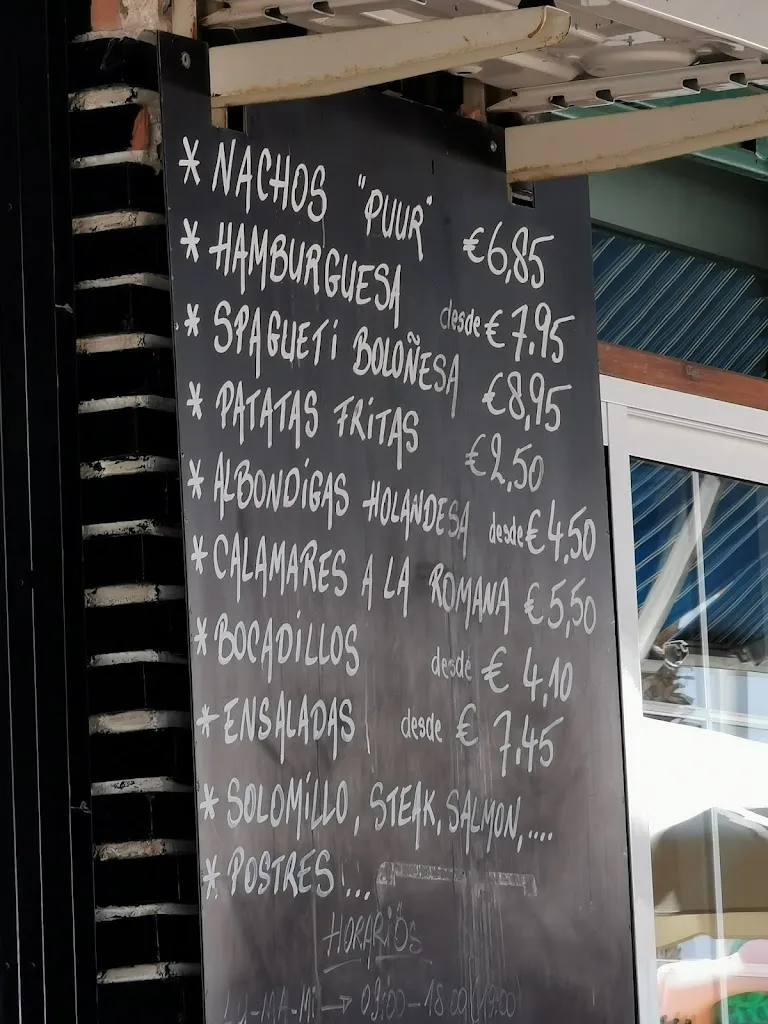 * NACHOS "PUUR" €6,85
* HAMBURGUESA desde €7.95
* SPAGUETi BOLOÑESA €8,95
* PATATAS FRiTAS €2,50
* ALBONDiGAS HOLANDESA desde €4,50
* CALAMARES A LA ROMANA €5,50
* BOCADiLLOS desde € 4,10
* ENSALADAS desde € 7.45
* SOLOMiLLO, STEAK, SALMON,....
* POSTRES ...
HORARiOS
LU-MA-Mi → 09:00-18:00 (19:00)